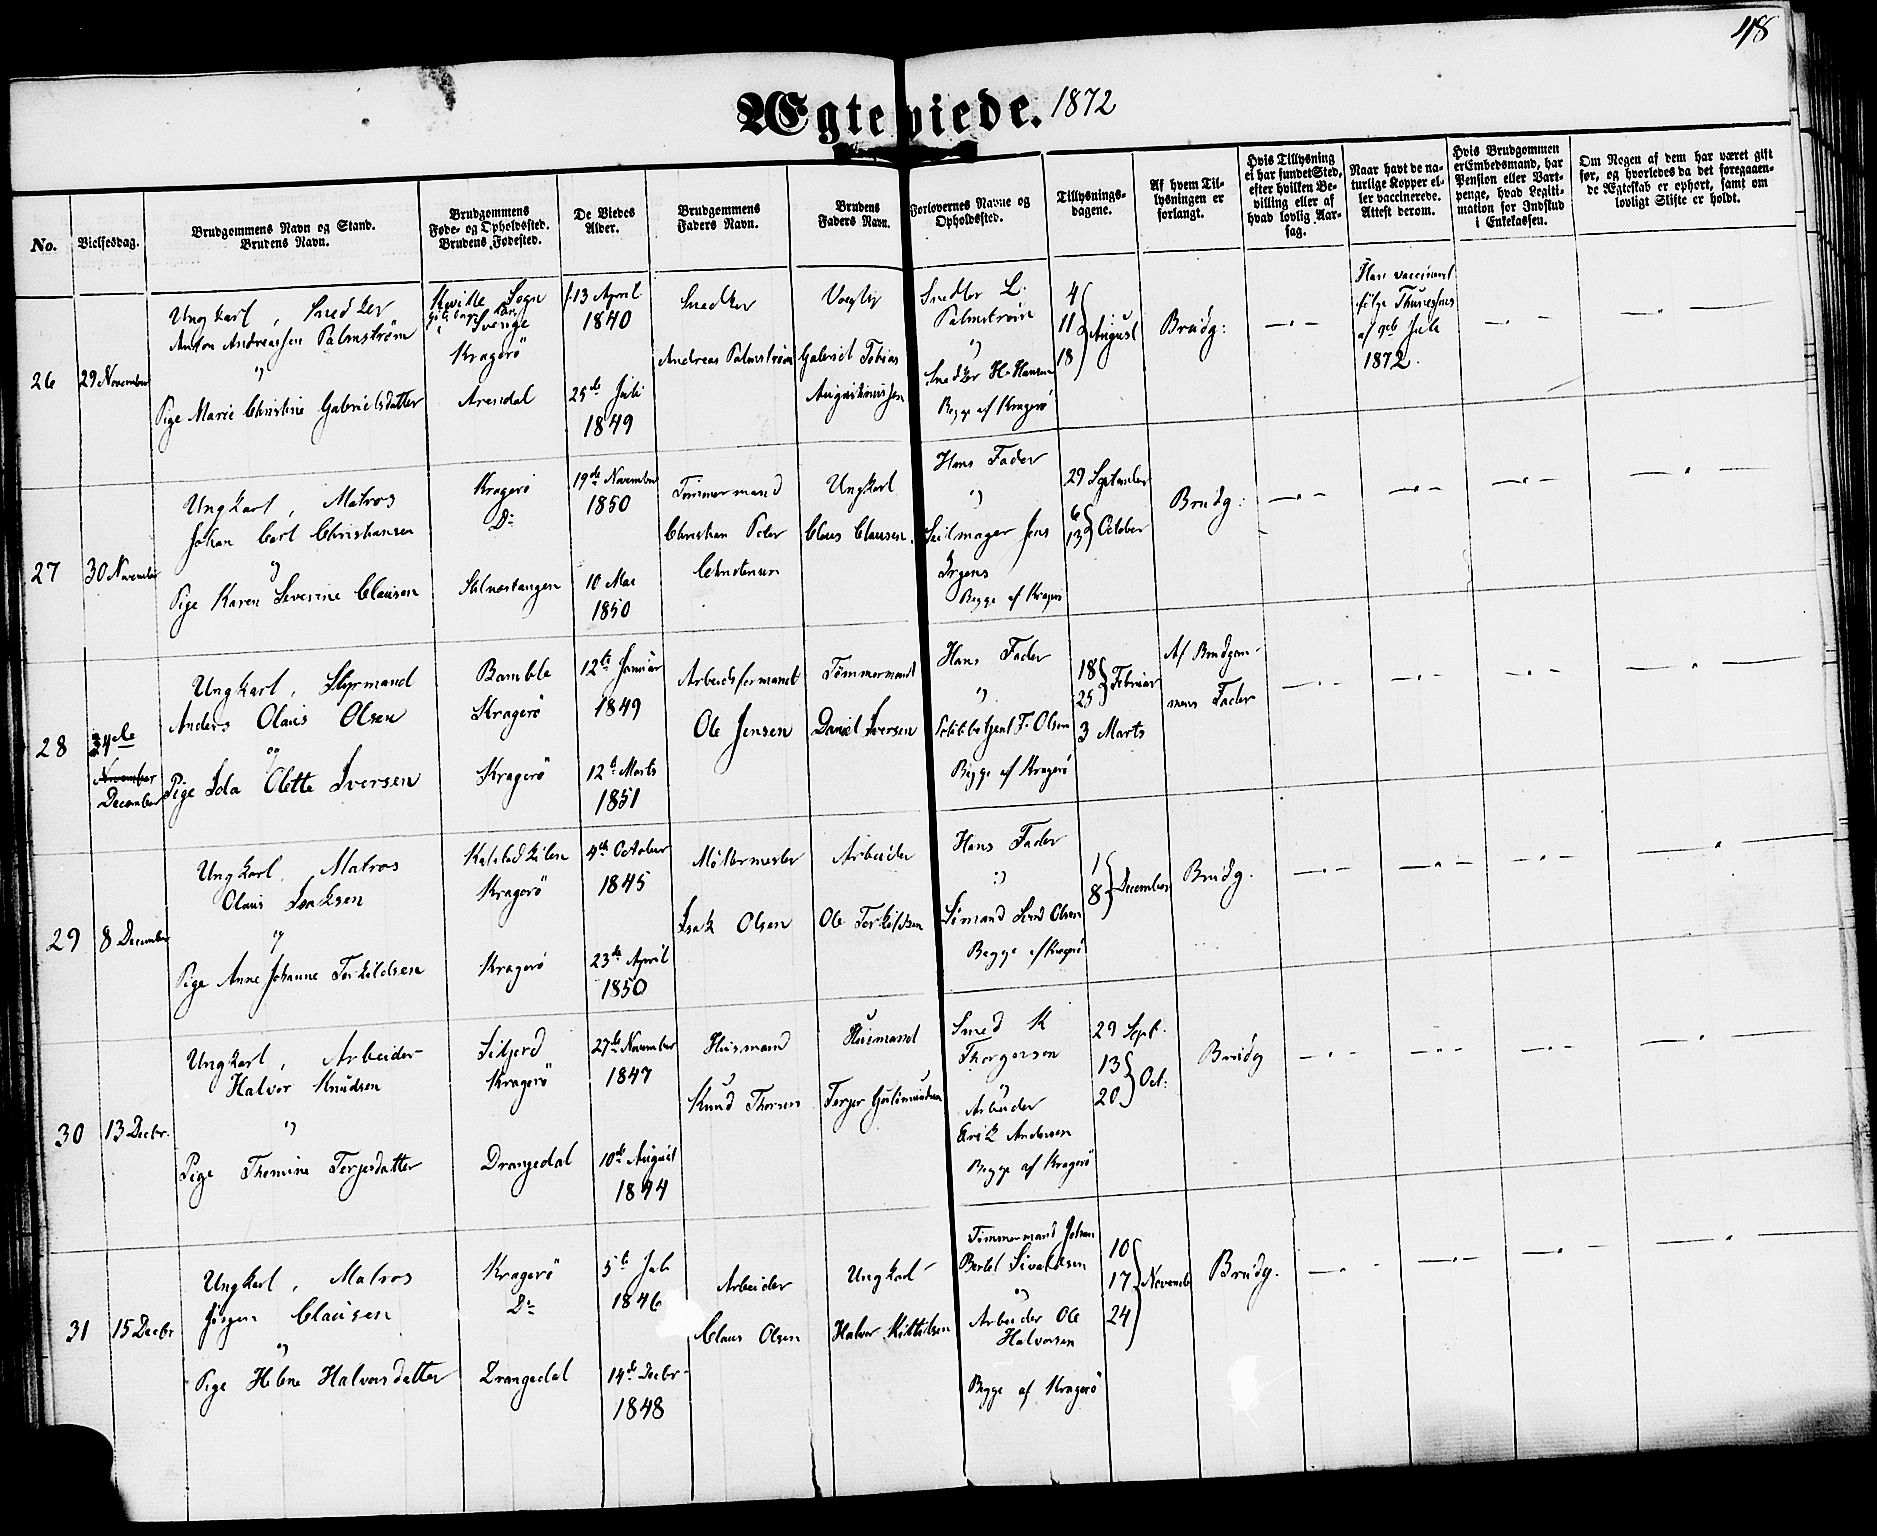 48
Ægteviede. 1872
No.
Vielsesdag.
Brudgommens Navn og Stand.
Brudens Navn.
Brudgommens
Føde- og Opholdssted.
Brudens Fødested.
De Viedes
Alder.
Brudgommens
Faders Navn.
Brudens
Faders Navn.
Forlovernes Navne og
Opholdssted.
Tillysnings-
dagene.
Af hvem Til-
lysningen er
forlangt.
Hvis Tillysning
ei har fundet Sted,
efter hvilken Be-
villing eller af
hvad lovlig Aar-
sag.
Naar havt de na-
turlige Kopper el-
ler vaccinerede.
Attest derom.
Hvis Brudgommen
er Embedsmand, har
Pension eller Vart-
penge, hvad Legiti-
mation for Indskud
i Enkekassen.
Om Nogen af dem har været gift
før, og hvorledes da det foregaaen-
de Ægteskab er ophørt, samt om
lovligt Skifte er holdt.
26
29 November
Ungkarl, Snedker
Anton Andreassen Palmstrøm
og
Pige Marie Christine Gabrielsdatter
Sogn
Sverige
Kragerö
Arendal
f. 13 April
1840
25de Juli
1849
Snedker
Andreas Palmstrøm
Gabriel Tobias
Snedker L.
Palmstrøm
og
Snedker H. Hansen
Begge af Kragerö
4
11
18
August
Brudg:
Juli
1872.
27
30 November
Ungkarl, Matros
Johan Carl Christiansen
og
Pige Karen Severine Clausen
Kragerö
Do
10 Mai
1850
19de November
1850
Tømmermand
Christian Peter
Christensen
Ungkarl
Claus Clausen.
Hans Fader
og
Seilmager Jens
Begge af Kragerö
29 September
6
13
October
Brudg:
28
24de
November
December
Ungkarl, Styrmand
Anders Olaus Olsen
og
Pige Ida Olette Iversen
Bamble
Kragerö
Kragerö
12te Januar
1849
12te Marts
1851
Arbeidsformand
Ole Jensen
Tømmermand
Daniel Iversen
Hans Fader
og
F. Olsen
Begge af Kragerö
18
25
Februar
3 Marts
Af Brudgom-
mens Fader
29
8 December
Ungkarl, Matros
Olaus Isaksen
og
Pige Anne Johanne Terkildsen
Kragerö
Kragerö
4de October
1845
23de April
1850
Isak Olsen
Arbeider
Ole Terkildsen
Hans Fader
og
Sömand Olsen
Begge af Kragerö
1
8
December
Brudg.
30
13 Decbr.
Ungkarl, Arbeider
Halvor Knudsen
og
Pige Thomine Terjesdatter
Siljord
Kragerö
Drangedal
27de November
1847
10de August
1844
Husmand
Knud Thorsen
Husmand
Terjer
Smed K
Thorgersen
og
Arbeider
Erik Andersen
Begge af Kragerö
29 Sept.
13
20
Oct:
Brudg
31
15 Decbr
Ungkarl, Matros
Jörgen Clausen
og
Pige Helene Halvorsdatter
Kragerö
Do
Drangedal
5te Juli
1846
14de Decbr
1848
Arbeider
Claus Olsen
Ungkarl
Halvor Kittilsen
Tømmermand Johan
Bertel Sivaldsen
og
Arbeider Ole
Halvorsen
Begge af Kragerö
10
17
24
Novemb
Brudg.